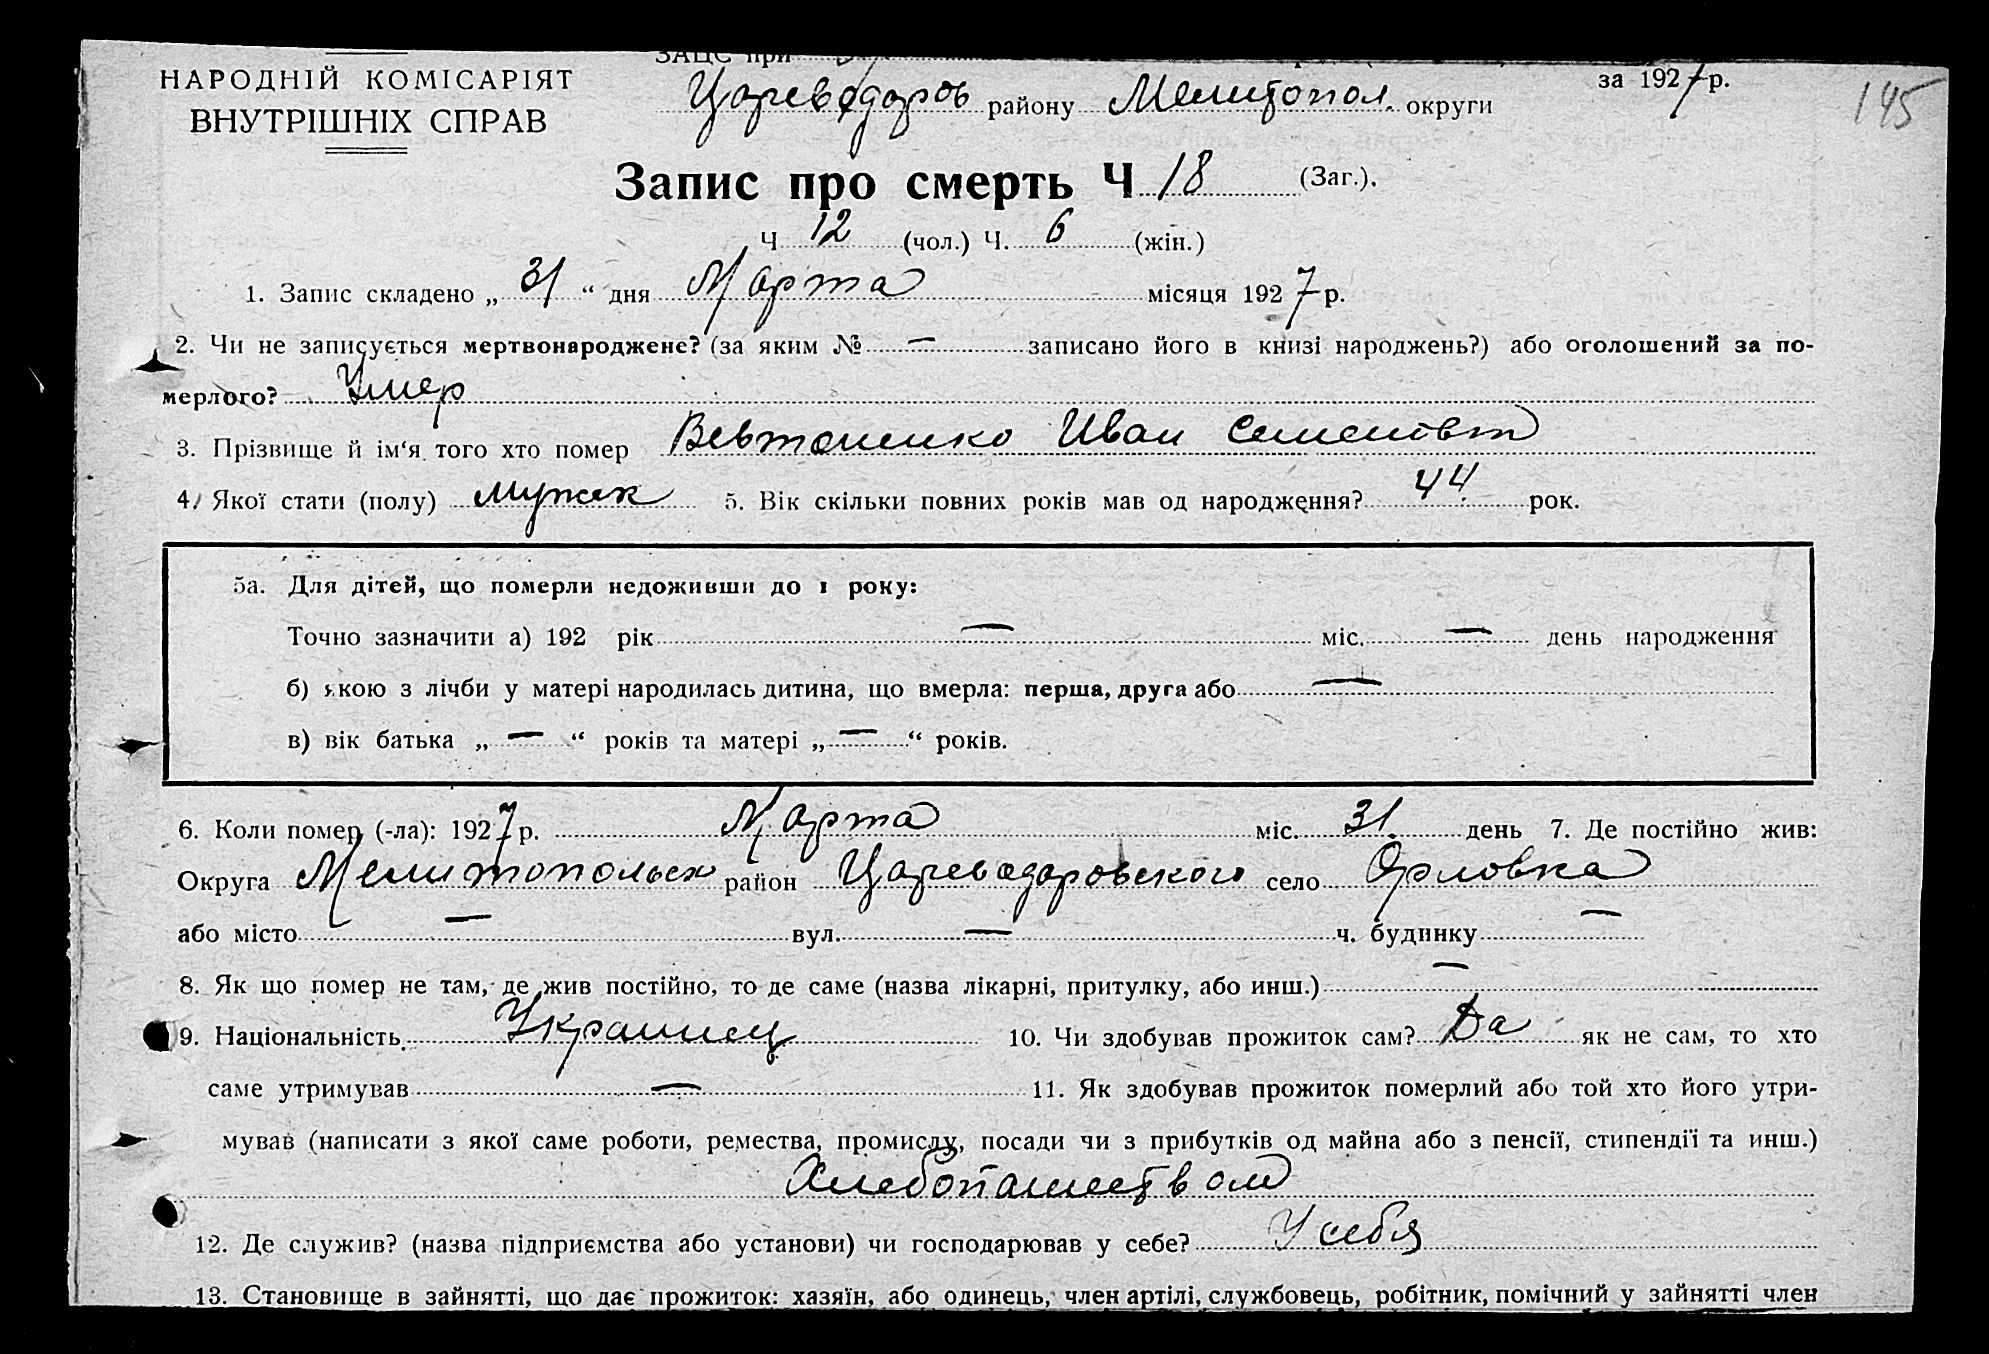 НАРОДНІЙ КОМІСАРІЯТ
ВНУТРІШНІХ СПРАВ
ЗАЦС при
Цареводаров району Мелитопол. округи
за 1927 р.
145
Запис про смерть Ч 18 (Заг.).
Ч 12 (чол.) Ч. 6 (жін.)
1. Запис складено „ 31 “ дня Марта місяця 1927 р.
2. Чи не записується мертвонароджене? (за яким № — записано його в книзі народжень?) або оголошений за по-
мерлого? Умер
3. Прізвище й ім‘я того хто помер Иван
4. Якої стати (полу) мужск 5. Вік скільки повних років мав од народження? 44 рок.
5а. Для дітей, що померли недоживши до 1 року:
Точно зазначити а) 192 рік — міс. — день народження
б) якою з лічби у матері народилась дитина, що вмерла: перша, друга або —
в) вік батька „ — “ років та матері „ — “ років.
6. Коли помер (-ла): 1927 р. Марта міс. 31 день 7. Де постійно жив:
Округа Мелитопольск район Цареводаровского село Орловка
або місто — вул. — ч. будинку —
8. Як що помер не там, де жив постійно, то де саме (назва лікарні, притулку, або инш.) —
9. Національність Украинец 10. Чи здобував прожиток сам? Да як не сам, то хто
саме утримував — 11. Як здобував прожиток померлий або той хто його утри-
мував (написати з якої саме роботи, ремества, промислу, посади чи з прибутків од майна або з пенсії, стипендії та инш.)
Хлебопашеством
12. Де служив? (назва підприємства або установи) чи господарював у себе? У себя
13. Становище в зайнятті, що дає прожиток: хазяїн, або одинець, член артілі, службовець, робітник, помічний у зайнятті член